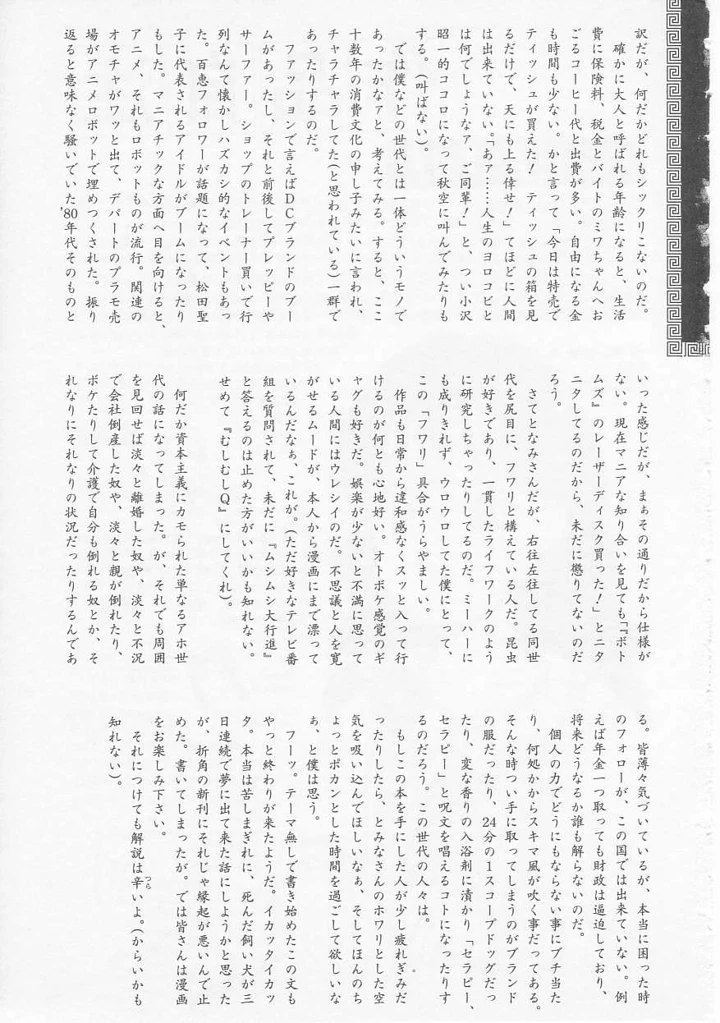 訳だが、何だかどれもシックリこないのだ。
　確かに大人と呼ばれる年齢になると、生活
費に保険料、税金とバイトのミワちゃんへお
ごるコーヒー代と出費が多い。自由になる金
も時間も少ない。かと言って「今日は特売で
ティッシュが買えた！　ティッシュの箱を見
るだけで、天にも上る倖せ！」てほどに人間
は出来ていない。「あァ……人生のヨロコビと
は何でしょうなァ、ご同輩！」と、つい小沢
昭一的ココロになって秋空に叫んでみたりも
する。（叫ばない）。
　では僕などの世代とは一体どういうモノで
あったかなァと、考えてみる。すると、ここ
十数年の消費文化の申し子みたいに言われ、
チャラチャラしてた（と思われている）一群で
あったりするのだ。
　ファッションで言えばＤＣブランドのブー
ムがあったし、それと前後してプレッピーや
サーファー。ショップのトレーナー買いで行
列なんて懐かしハズカシ的なイベントもあっ
た。百恵フォロワーが話題になって、松田聖
子に代表されるアイドルがブームになったり
もした。マニアチックな方面へ目を向けると、
アニメ、それもロボットものが流行。関連の
オモチャがワッと出て、デパートのプラモ売
場がアニメロボットで埋めつくされた。振り
返ると意味なく騒いでいた'80年代そのものと
いった感じだが、まぁその通りだから仕様が
ない。現在マニアな知り合いを見ても「『ボト
ムズ』のレーザーディスク買った！」とニタ
ニタしてるのだから、未だに懲りてないのだ
ろう。
　さてとなみさんだが、右往左往してる同世
代を尻目に、フワリと構えている人だ。昆虫
が好きであり、一貫したライフワークのよう
に研究しちゃったりしてるのだ。ミーハーに
も成りきれず、ウロウロしてた僕にとって、
この「フワリ」具合がうらやましい。
　作品も日常から違和感なくスッと入って行
けるのが何とも心地好い。オトボケ感覚のギ
ャグも好きだ。娯楽が少ないと不満に思って
いる人間にはウレシイのだ。不思議と人を寛
がせるムードが、本人から漫画にまで漂って
いるんだなぁ、これが。（ただ好きなテレビ番
組を質問されて、未だに『ムシムシ大行進』
と答えるのは止めた方がいいかも知れない。
せめて『むしむしＱ』にしてくれ）。
　何だか資本主義にカモられた単なるアホ世
代の話になってしまった。が、それでも周囲
を見回せば淡々と離婚した奴や、淡々と不況
で会社倒産した奴や、淡々と親が倒れたり、
ボケたりして介護で自分も倒れる奴とか、そ
れなりにそれなりの状況だったりするんであ
る。皆薄々気づいているが、本当に困った時
のフォローが、この国では出来ていない。例
えば年金一つ取っても財政は逼迫しており、
将来どうなるか誰も解らないのだ。
　個人の力でどうにもならない事にブチ当た
り、何処かからスキマ風が吹く事だってある。
そんな時つい手に取ってしまうのがブランド
の服だったり、24分の１スコープドッグだっ
たり、変な香りの入浴剤に漬かり「セラピー、
セラピー」と呪文を唱えるコトになったりす
るのだろう。この世代の人々は。
　もしこの本を手にした人が少し疲れぎみだ
ったりしたら、とみなさんのホワリとした空
気を吸い込んでほしいなぁ、そしてほんのち
ょっとポカンとした時間を過ごして欲しいな
ぁ、と僕は思う。
　フーッ。テーマ無しで書き始めたこの文も
やっと終わりが来たようだ。イカッタイカッ
タ。本当は苦しまぎれに、死んだ飼い犬が三
日連続で夢に出て来た話にしようかと思った
が、折角の新刊にそれじゃ縁起が悪いんで止
めた。書いてしまったが。では皆さんは漫画
をお楽しみ下さい。
　それにつけても解説は辛いよ。（からいかも
つら
知れない）。